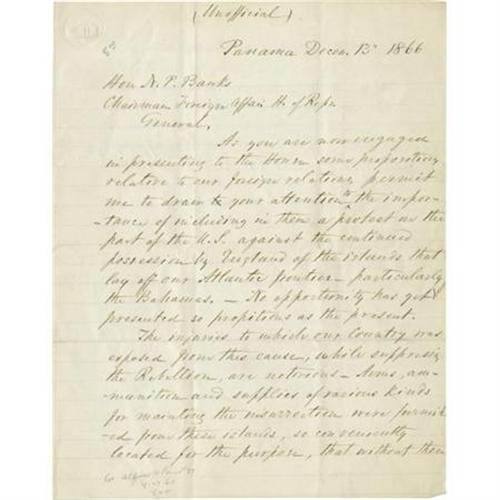 (Unofficial)
Panama Decem. 13th 1866
Hon N. P. Banks
Chairman Foreign Affair H. of Reps
General,
As you are now engaged
in presenting to the House some propositions
relative to our foreign relations, permit
me to draw your attention to the impor-
-tance of including in them a protest on the
part of the U.S. against the continued
possession by England of the islands that
lay off our Atlantic frontier – particularly
the Bahamas. – No opportunity has yet
presented so propitious as the present.
The injuries to which our Country was
exposed from this cause, while suppressing
the Rebellion, are notorious – Arms, am-
-munition and supplies of various kinds
for maintaing the insurrection were furnish
-ed from these islands, so conveniently
located for the purpose, that without them